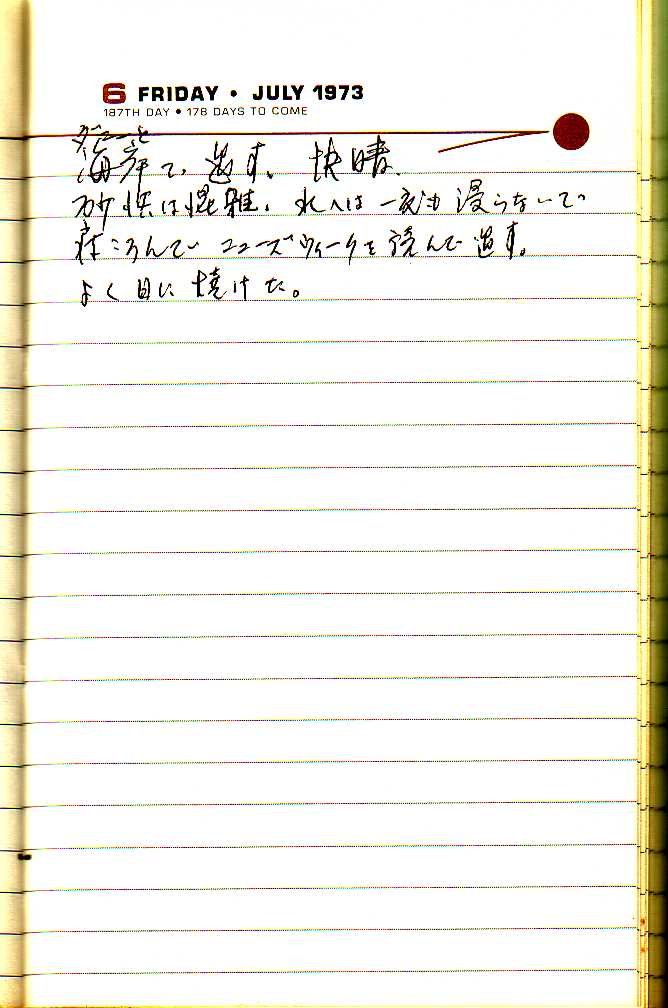 6 FRIDAY • JULY 1973
187TH DAY • 178 DAYS TO COME
海岸で過す。快晴.
砂浜は混雑。水へは一度も浸らないで
寝ころんでニューズウィークを読んで過す。
よく日に焼けた。